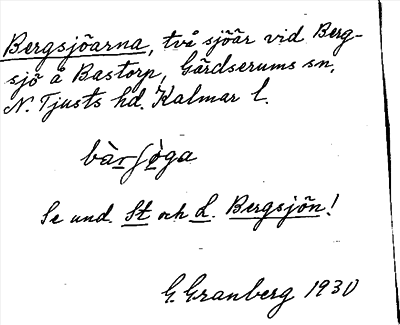 Bergsjöarna, två sjöar vid Berg-
sjö å Bastorp, Gärdserums sn,
N. Tjusts hd. Kalmar l.
bàrʃøga
Se und. St och L. Bergsjön!
G. Granberg 1930